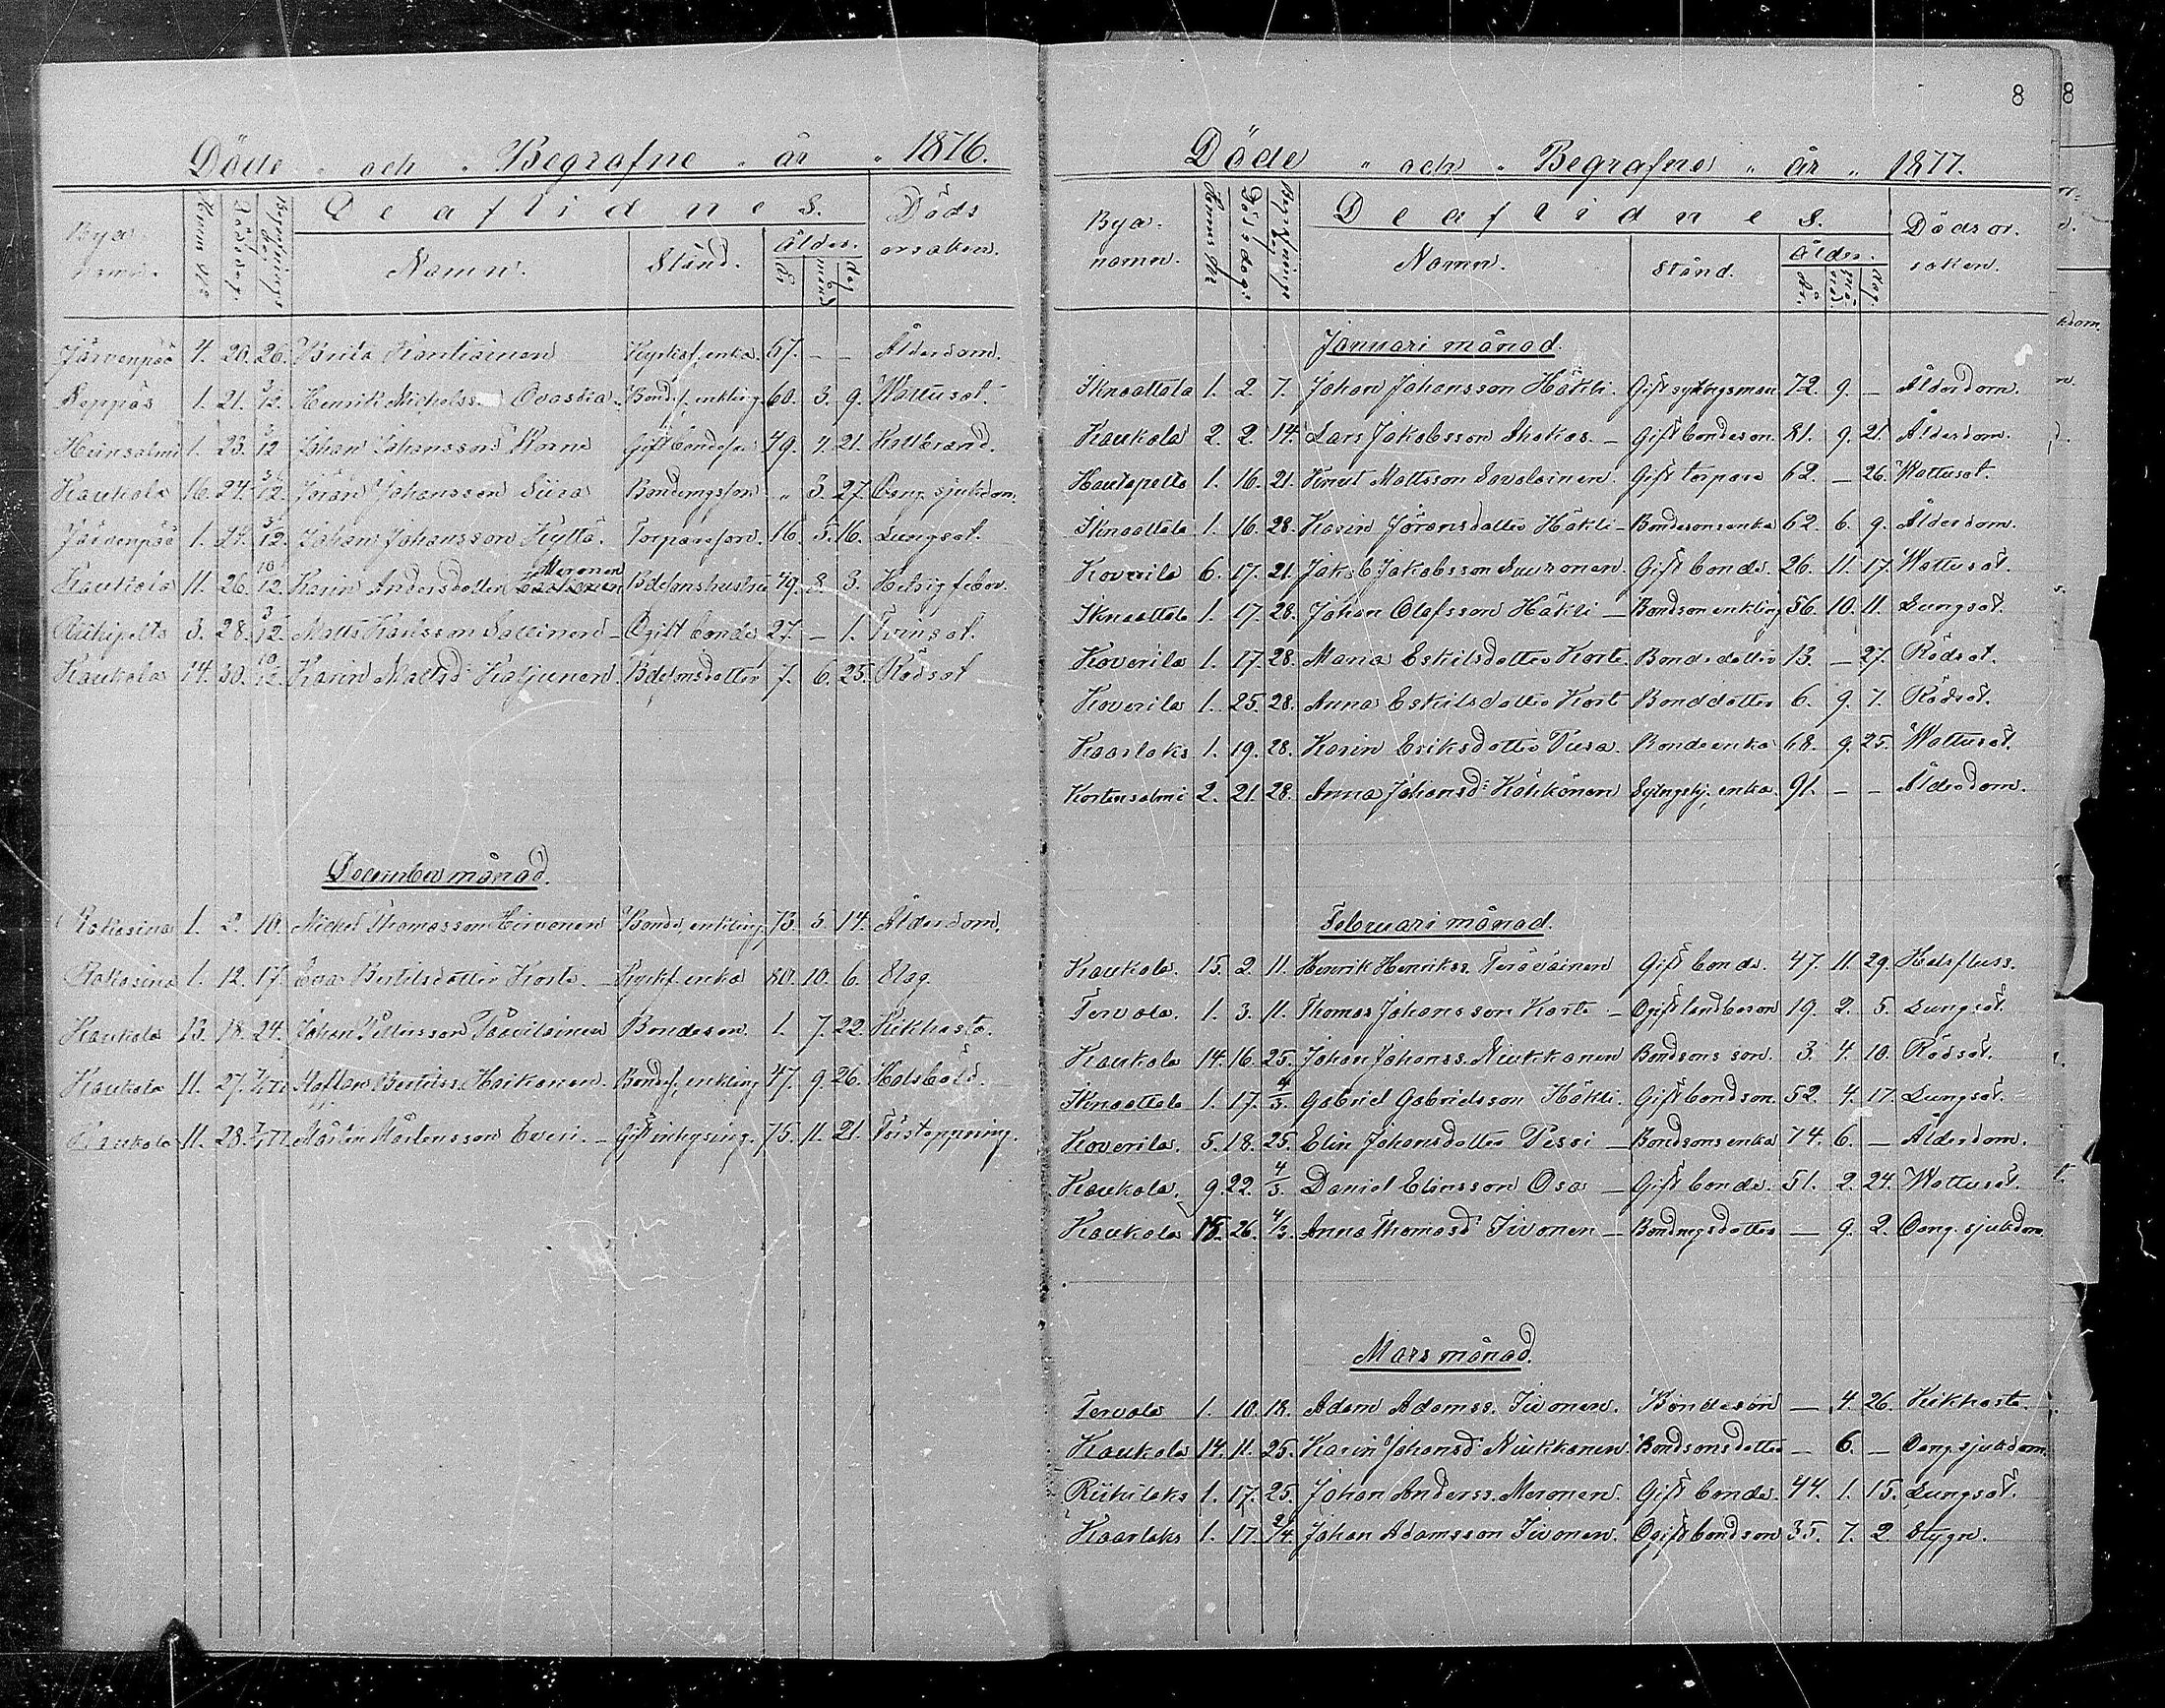 Döde och Begrafne år 1876.
Bya namn. Hemms № Dödsdag. Begrafnings dag De aflidnes. Döds orsaken.
Namn. Stånd. Ålder. År månad dag
Järvenpää 4. 20. 26. Brita Kontiainen Kyrkof. enka. 67. — — Ålderdom.
Seppäs 1. 21. 3/12. Henrik Michelss. Ovaska Bondes. enkling. 60. 3. 9. Wattusot.
Heinsalmi 1. 23. 3/12 Johan Johansson Worna Gift bondeson 49. 4. 21. Kallbrand.
Kaukola 16. 24. 3/12. Jöran Johansson Siira Bondemgsson „ 3. 27. Oang. sjukdom.
Järvenpää 1. 24. 3/12. Johan Johansson Kyttä. Torpareson. 16. 5. 16. Lungsot.
Kaukola 11. 26. 10/12. Karin Andersdotter Meronen Bdesonshustru 49. 8. 3. Hetsig feber.
Riihipelto 3. 28. 3/12. Matts Karlsson Sallinen — Ogift bonde 27. — 1. Tvinsot.
Kaukola 14. 30. 10/12. Karin Mattsd: Kaljunen. Bdesonsdotter 7. 6. 25. Rödsot
December månad.
Rakosina 1. 2. 10. Michel Thomasson Hirvonen Bonde, enkling. 73. 5. 14. Ålderdom.
Rakosina 1. 12. 17. Eva Bertilsdotter Korte. — Kyrkf. enka 80. 10. 6. Slag.
Kaukola 13. 18. 24. Johan Pettersson Paavilainen Bondeson. 1. 7. 22. Kikhosta.
Kaukola 11. 27. 7/1 77. Staffan Bertilss. Heikonen. Bondes. enkling 47. 9. 26. Halsböld.
Kaukola 11. 28. 7/1 77. Mårten Mårtensson Everi. — Gift inhysing. 75. 11. 21. Förstoppning.
8 8
Döde „ och „ Begrafne „ år „ 1877.
Bya. namn. Hemms № Dödsdag. Begrafnings dag De aflidnes. Dödsor. saken.
Namn. Stånd. Ålder. År. månad. dag.
Januari månad.
Iknoattala 1. 2. 7. Johan Johansson Häkli. Gift sytningsman 72. 9. — Ålderdom.
Kaukola 2. 2. 14. Lars Jakobsson Ahokas. — Gift bondeson. 81. 9. 21. Ålderdom.
Hautapelto 1. 16. 21. Knut Mattsson Savolainen. Gift torpare 62. — 26. Wattusot.
Iknoattala 1. 16. 28. Karin Jöransdotter Häkli — Bondesonsenka 62. 6. 9. Ålderdom.
Koverila 6. 17. 21. Jakob Jakobsson Suuronen. Gift bonde. 26. 11. 17. Wattusot.
Iknoattala 1. 17. 28. Johan Olofsson Häkli — Bondson enkling 56. 10. 11. Lungsot.
Koverila 1. 17. 28. Maria Eskilsdotter Korte. Bondedotter 13. — 27. Rödsot.
Koverila 1. 25. 28. Anna Eskilsdotter Kort Bonddotter 6. 9. 7. Rödsot.
Kaarlaks 1. 19. 28. Karin Eriksdotter Pusa. Bondeenka 68. 9. 25. Wattusot.
Kortensalmi 2. 21. 28. Anna Johansd: Kähkönen Sytnghj. enka. 91. — — Ålderdom.
Februari månad.
Kaukola. 15. 2. 11. Henrik Henrikss. Teräväinen Gift bonde. 47. 11. 29. Halsfluss.
Tervola. 1. 3. 11. Thomas Johansson Korte — Ogift landboson 19. 2. 5. Lungsot.
Kaukola 14. 16. 25. Johan Johanss. Niukkanen Bondsons son. 3. 4. 10. Rödsot.
Iknoattala 1. 17. 4/3. Gabriel Gabrielsson Häkli. Gift bondson. 52. 4. 17. Lungsot.
Koverila. 5. 18. 25. Elin Johansdotter Pessi — Bondsonsenka 74. 6. — Ålderdom.
Kaukola. 9. 22. 4/3. Daniel Eliasson Osa — Gift bonde. 51. 2. 24. Wattusot.
Kaukola 15. 26. 4/3. Anna Thomasd: Iivonen — Bondmgsdotter — 9. 2. Oang. sjukdom.
Mars månad.
Tervola 1. 10. 18. Adam Adamss. Iivonen. Bondeson — 4. 26. Kikhosta.
Kaukola 14. 11. 25. Karin Johansd: Niukkanen. Bondsonsdotter — 6. — Oang. sjukdom.
Riihilaks 1. 17. 25. Johan Anderss. Meronen. Gift bonde. 44. 1. 15. Lungsot.
Kaarlaks 1. 17. 2/4. Johan Adamsson Iivonen. Ogift bondson 35. 7. 2. Stygn.